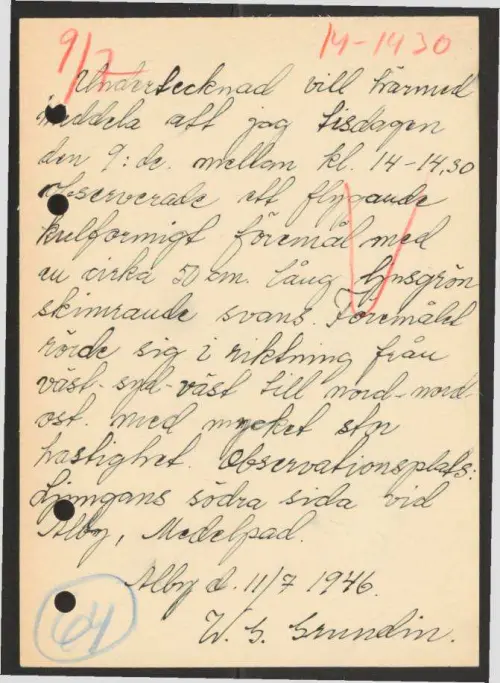 9/7 14-1430
Undertecknad vill härmed
meddela att jag tisdagen
den 9:de. mellan kl. 14-14,30
observerade ett flygande
kulformigt föremål med
en cirka 50 cm. lång ljusgrön
skimrande svans. Föremålet
rörde sig i riktning från
väst-syd-väst till nord-nord-
ost. med mycket stor
hastighet. Observationsplats:
Ljungans södra sida vid
Alby, Medelpad.
Alby d. 11/7 1946.
W. G. Grundin.
64